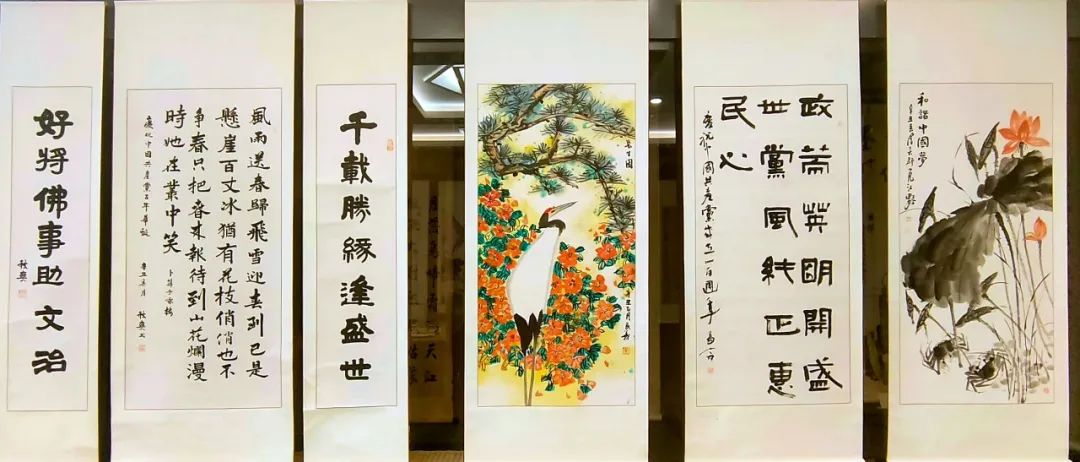 好將佛事助文治
風雨送春歸飛雪迎春到已是
懸崖百丈冰猶有花枝俏俏也不
争春只把春来報待到山花爛漫
時她在叢中笑
卜算子咏梅
慶祝中国共産黨百年華誕
千載勝緣逢盛世
政策英明開盛
世黨風純正惠
民心
慶祝中國共産黨成立一百週年
和諧中國夢